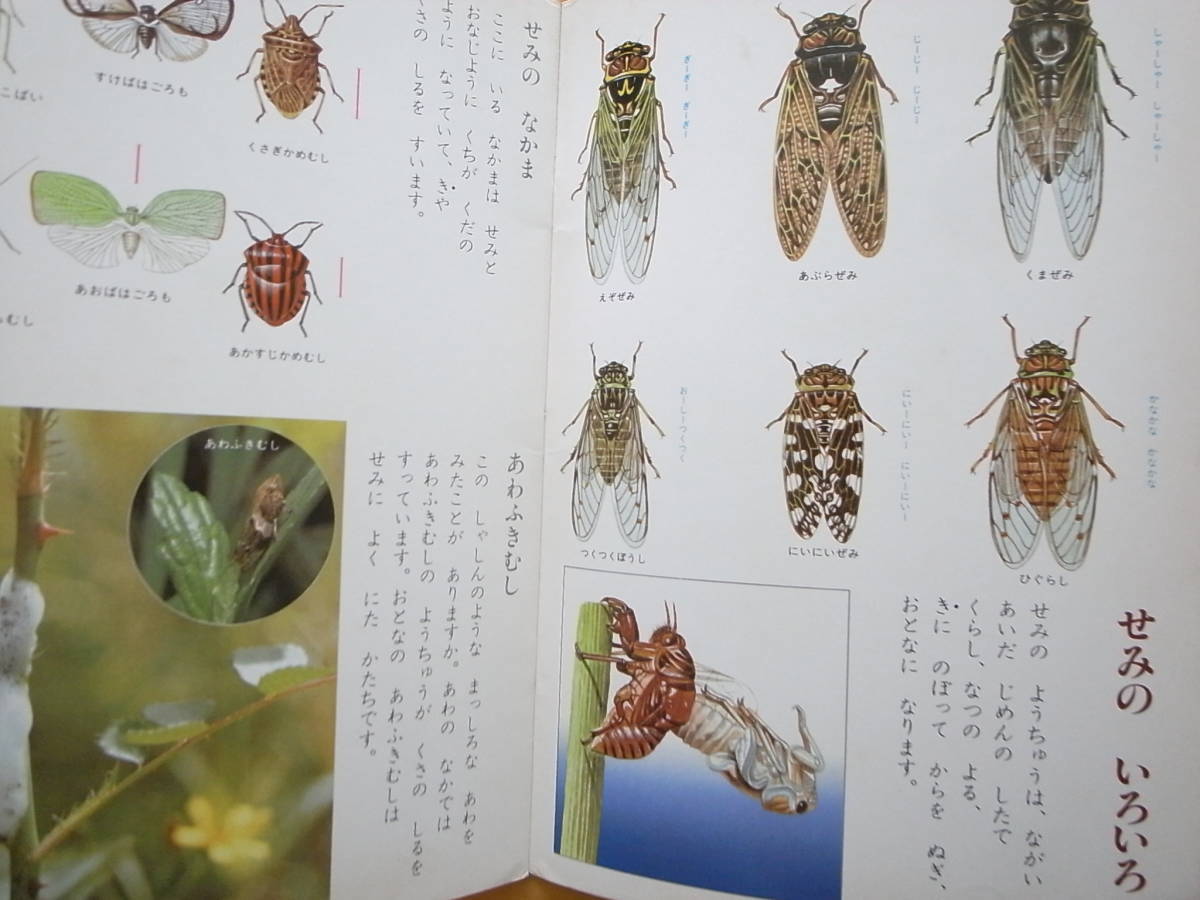 せみの いろいろ
せみの ようちゅうは、ながい
あいだ じめんの したで
くらし、なつの よる、
きに のぼって からを ぬぎ、
おとなに なります。
しゃーしゃー しゃーしゃー
くまぜみ
じーじー じーじー
あぶらぜみ
ぎーぎー ぎーぎー
えぞぜみ
かなかな かなかな
ひぐらし
にいーにいー にいーにいー
にいにいぜみ
おーしーつくつく
つくつくぼうし
せみの なかま
ここに いる なかまは せみと
おなじように くちが くだの
ように なっていて、きや
くさの しるを すいます。
くさぎかめむし
すけばはごろも
こばい
あかすじかめむし
あおばはごろも
むし
あわふきむし
この しゃしんのような まっしろな あわを
みたことが ありますか。あわの なかでは
あわふきむしの ようちゅうが くさの しるを
すっています。おとなの あわふきむしは
せみに よく にた かたちです。
あわふきむし